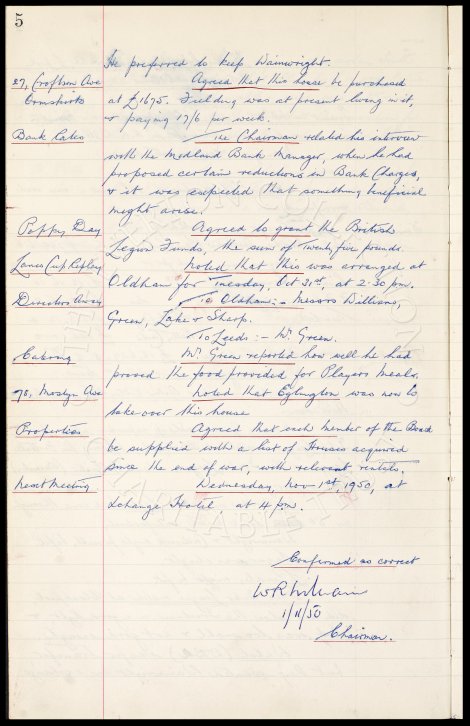 5
He preferred to keep Wainwright.
27, Croftson Ave
Ormskirk
Agreed that this house be purchased
at £1675. Fielding was at present living in it,
& paying 17/6 per week.
Bank Rates
The Chairman related his interview
with the Midland Bank Manager, when he had
proposed certain reductions in Bank Charges,
& it was expected that something beneficial
might arise.
Poppy Day
Agreed to grant the British
Legion Funds, the sum of Twenty five pounds.
Lancs Cup Replay
Noted that this was arranged at
Oldham for Tuesday, Oct 31st, at 2-30 pm.
Directors Away
To Oldham:- Messrs Williams,
Green, Lake & Sharp.
To Leeds:- Mr. Green.
Catering
Mr. Green reported how well he had
proved the food provided for Players Meals.
78, Mostyn Ave
Noted that Eglington was now to
take over this house
Properties
Agreed that each Member of the Board
be supplied with a list of Houses acquired
since the end of war, with relevant rentals.
Next Meeting
Wednesday, Nov 1st, 1950, at
Exchange Hotel, at 4 pm.
Confirmed as correct
W R Williams
1/11/50
Chairman.